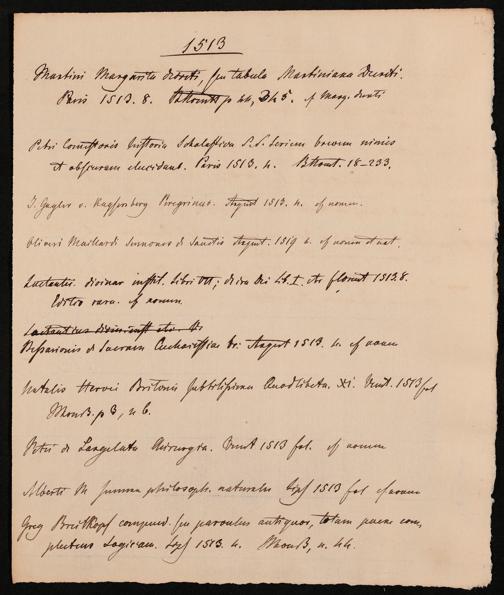 44
1513
Martini Margarita decreti, seu tabula Martiniana Decreti.
Paris 1513. 8. p 44, cf Marg. decreti
Petri Comestoris Historia Scholastica S. S. seriem brevem nimis
et obscuram elucidans. Paris 1513. 4. 18-233.
J. Geyler v. Kaysersberg Peregrinus. August 1513. 4. cf nomen.
Oliveri Maillardi Sermones de Sanctis August. 4. cf nomen et nat.
Lactantii divinar instit. Libri VII; de ira Dei Lib. I. etc florent 1513. 8.
Editio rara. cf nomen
Lactantius divin inst etc.
Bessarionis de Sacram Eucharistiae August 1513. 4. cf nomen
Natalis Hervei Britonis subtilissima Quodlibeta. XI. Venet. 1513 fol
p 3, n 6.
Petri de Largelata Chirurgia. Venet 1513 fol. cf nomen
Alberti M summa philosoph. naturalis Lips 1513 fol cf nomen
Greg Breitkopf compend. seu parvulus antiquor, totam paene com,
plectens Logicam. Lips 1513. 4. n. 44.